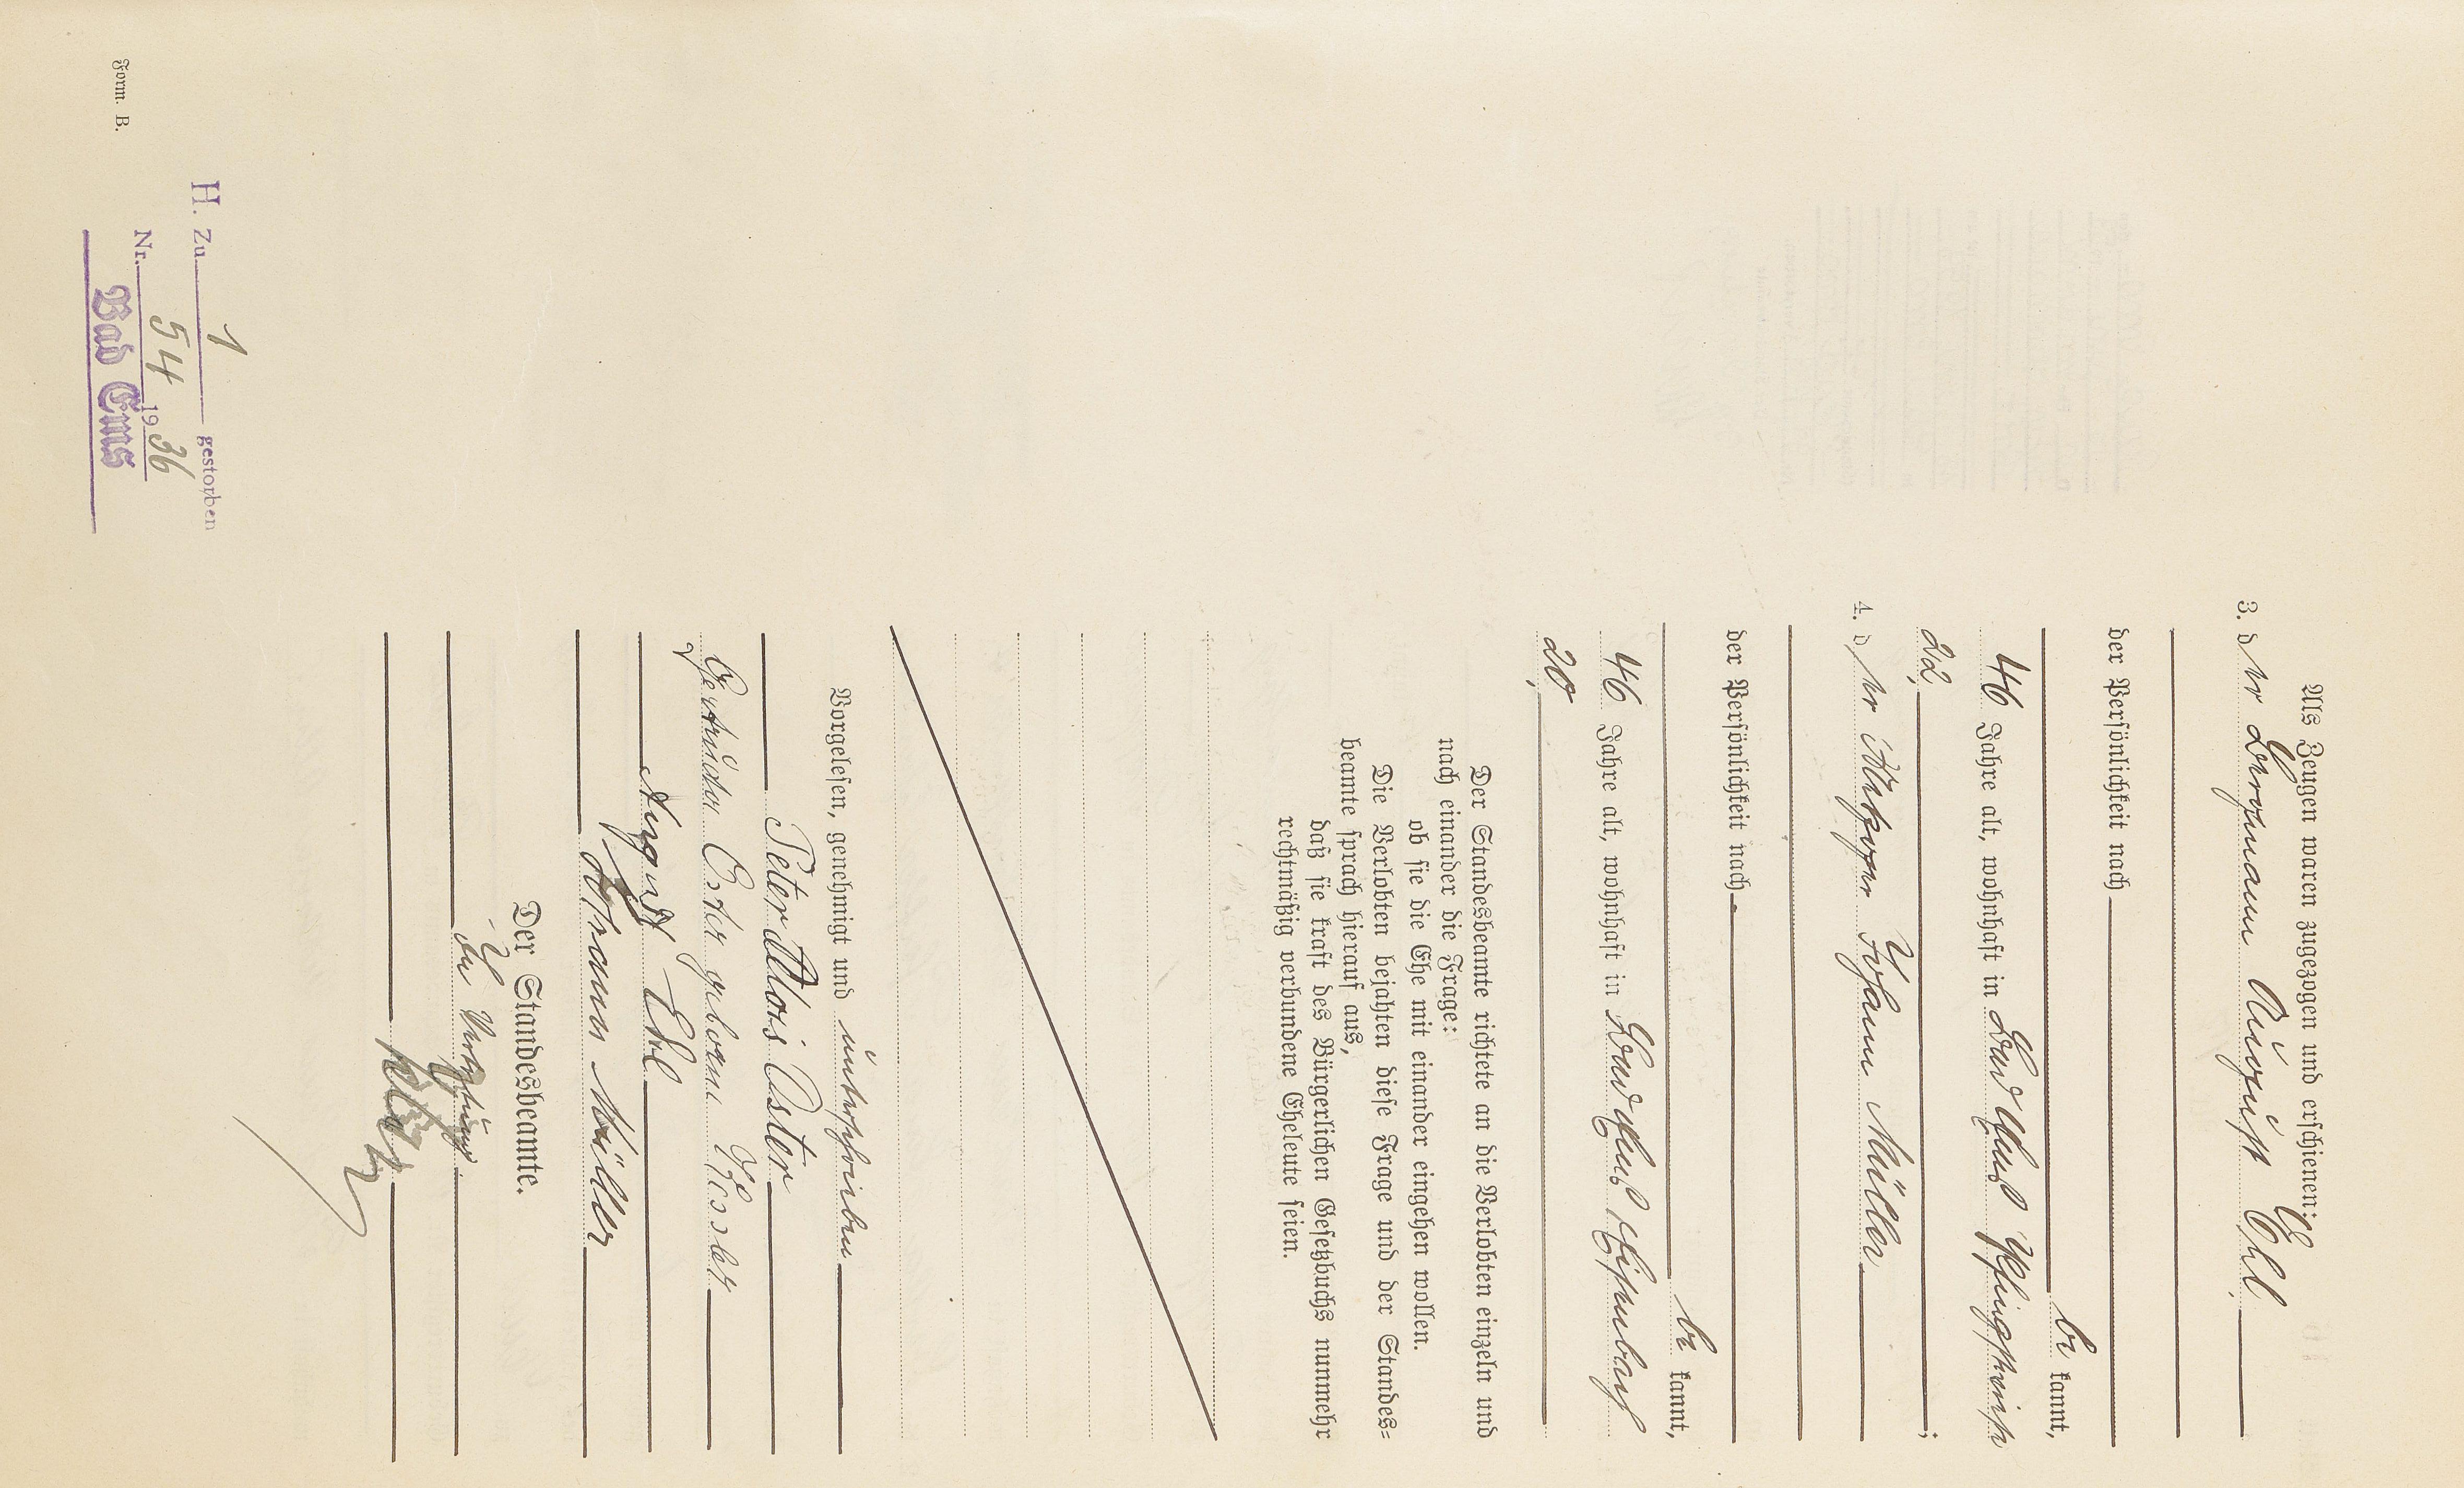 Als Zeugen waren zugezogen und erschienen:
3. der Bergmann August Ehl
der Persönlichkeit nach
be kannt,
46 Jahre alt, wohnhaft in Pfingstwiese
22, ;
4. der Johann Müller
der Persönlichkeit nach
be kannt,
46 Jahre alt, wohnhaft in
20,
Der Standesbeamte richtete an die Verlobten einzeln und
nach einander die Frage:
ob sie die Ehe mit einander eingehen wollen.
Die Verlobten bejahten diese Frage und der Standes=
beamte sprach hierauf aus,
daß sie kraft des Bürgerlichen Gesetzbuchs nunmehr
rechtmäßig verbundene Eheleute seien.
Vorgelesen, genehmigt und unterschrieben
Peter Alois Oster
Oster geborene
August Ehl
Johann Müller
Der Standesbeamte.
In Vertretung.
H. Zu 1 gestorben
Nr. 54 1936
Bad Ems
Form. B.